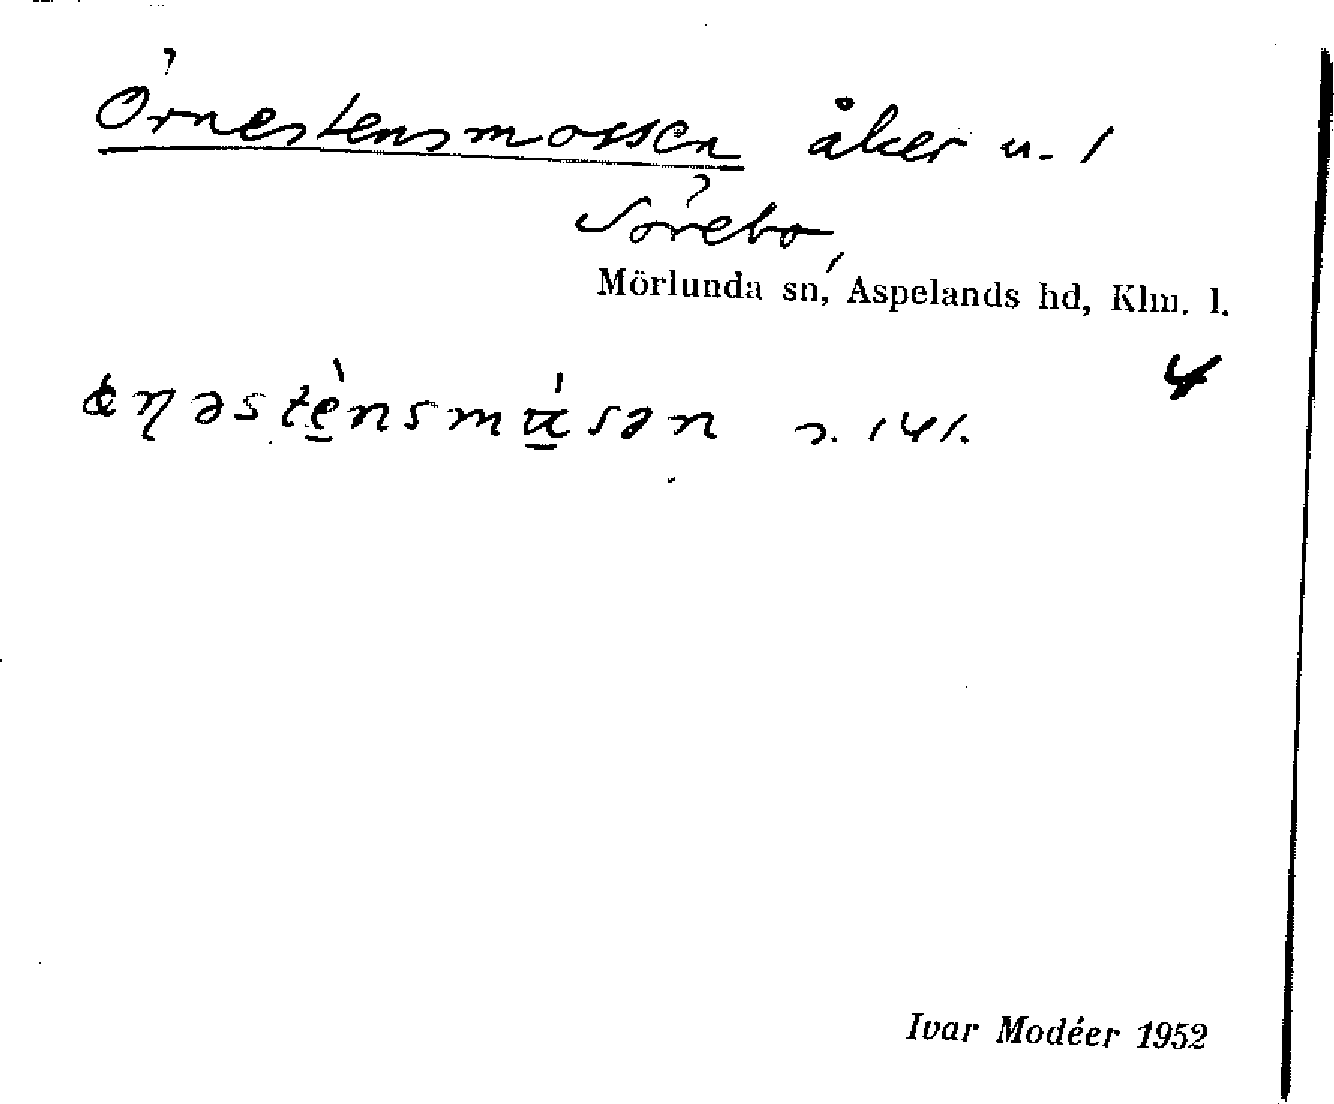 Örnestensmossen åker u. 1
Sörebo,
Mörlunda sn, Aspelands hd, Klm. l.
4
s. 141.
Ivar Modéer 1952